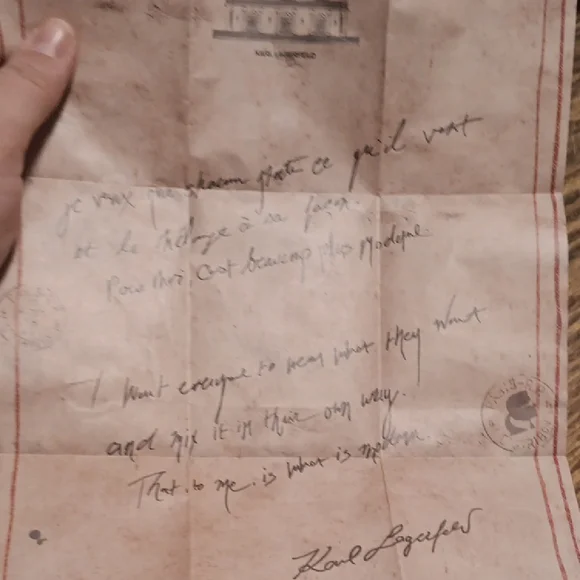 KARL LAGERFELD
je veux que chacun porte ce qu'il veut
et le mélange à sa façon.
Pour moi, c'est beaucoup plus moderne.
I want everyone to wear what they want
and mix it in their own way.
That, to me, is what is modern.
Karl Lagerfeld